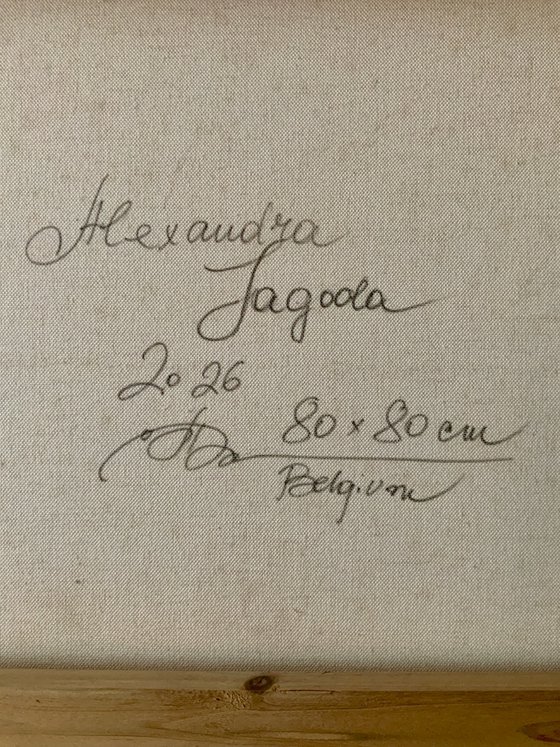 Alexandra
Jagoda
2026
80 x 80 cm
Belgium